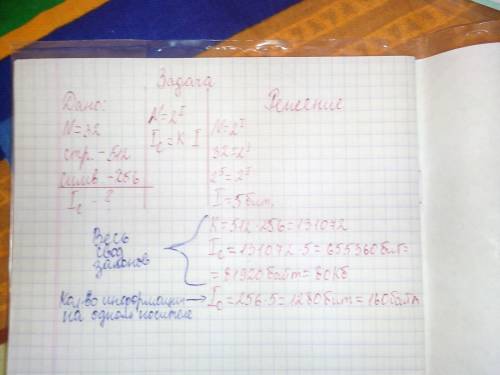 Задача
Дано:
N=32
стр. - 512
симв. - 256
I_c - ?
N=2^I
I_c = K · I
Решение
N=2^I
32=2^I
2^5=2^I
I=5 бит.
Весь
свод
законов
K=512·256=131072
I_c=131072·5=655360 бит=
=81920 байт=80 Кб
Кол-во информации
на одном носителе
I_c=256·5=1280 бит=160 байт